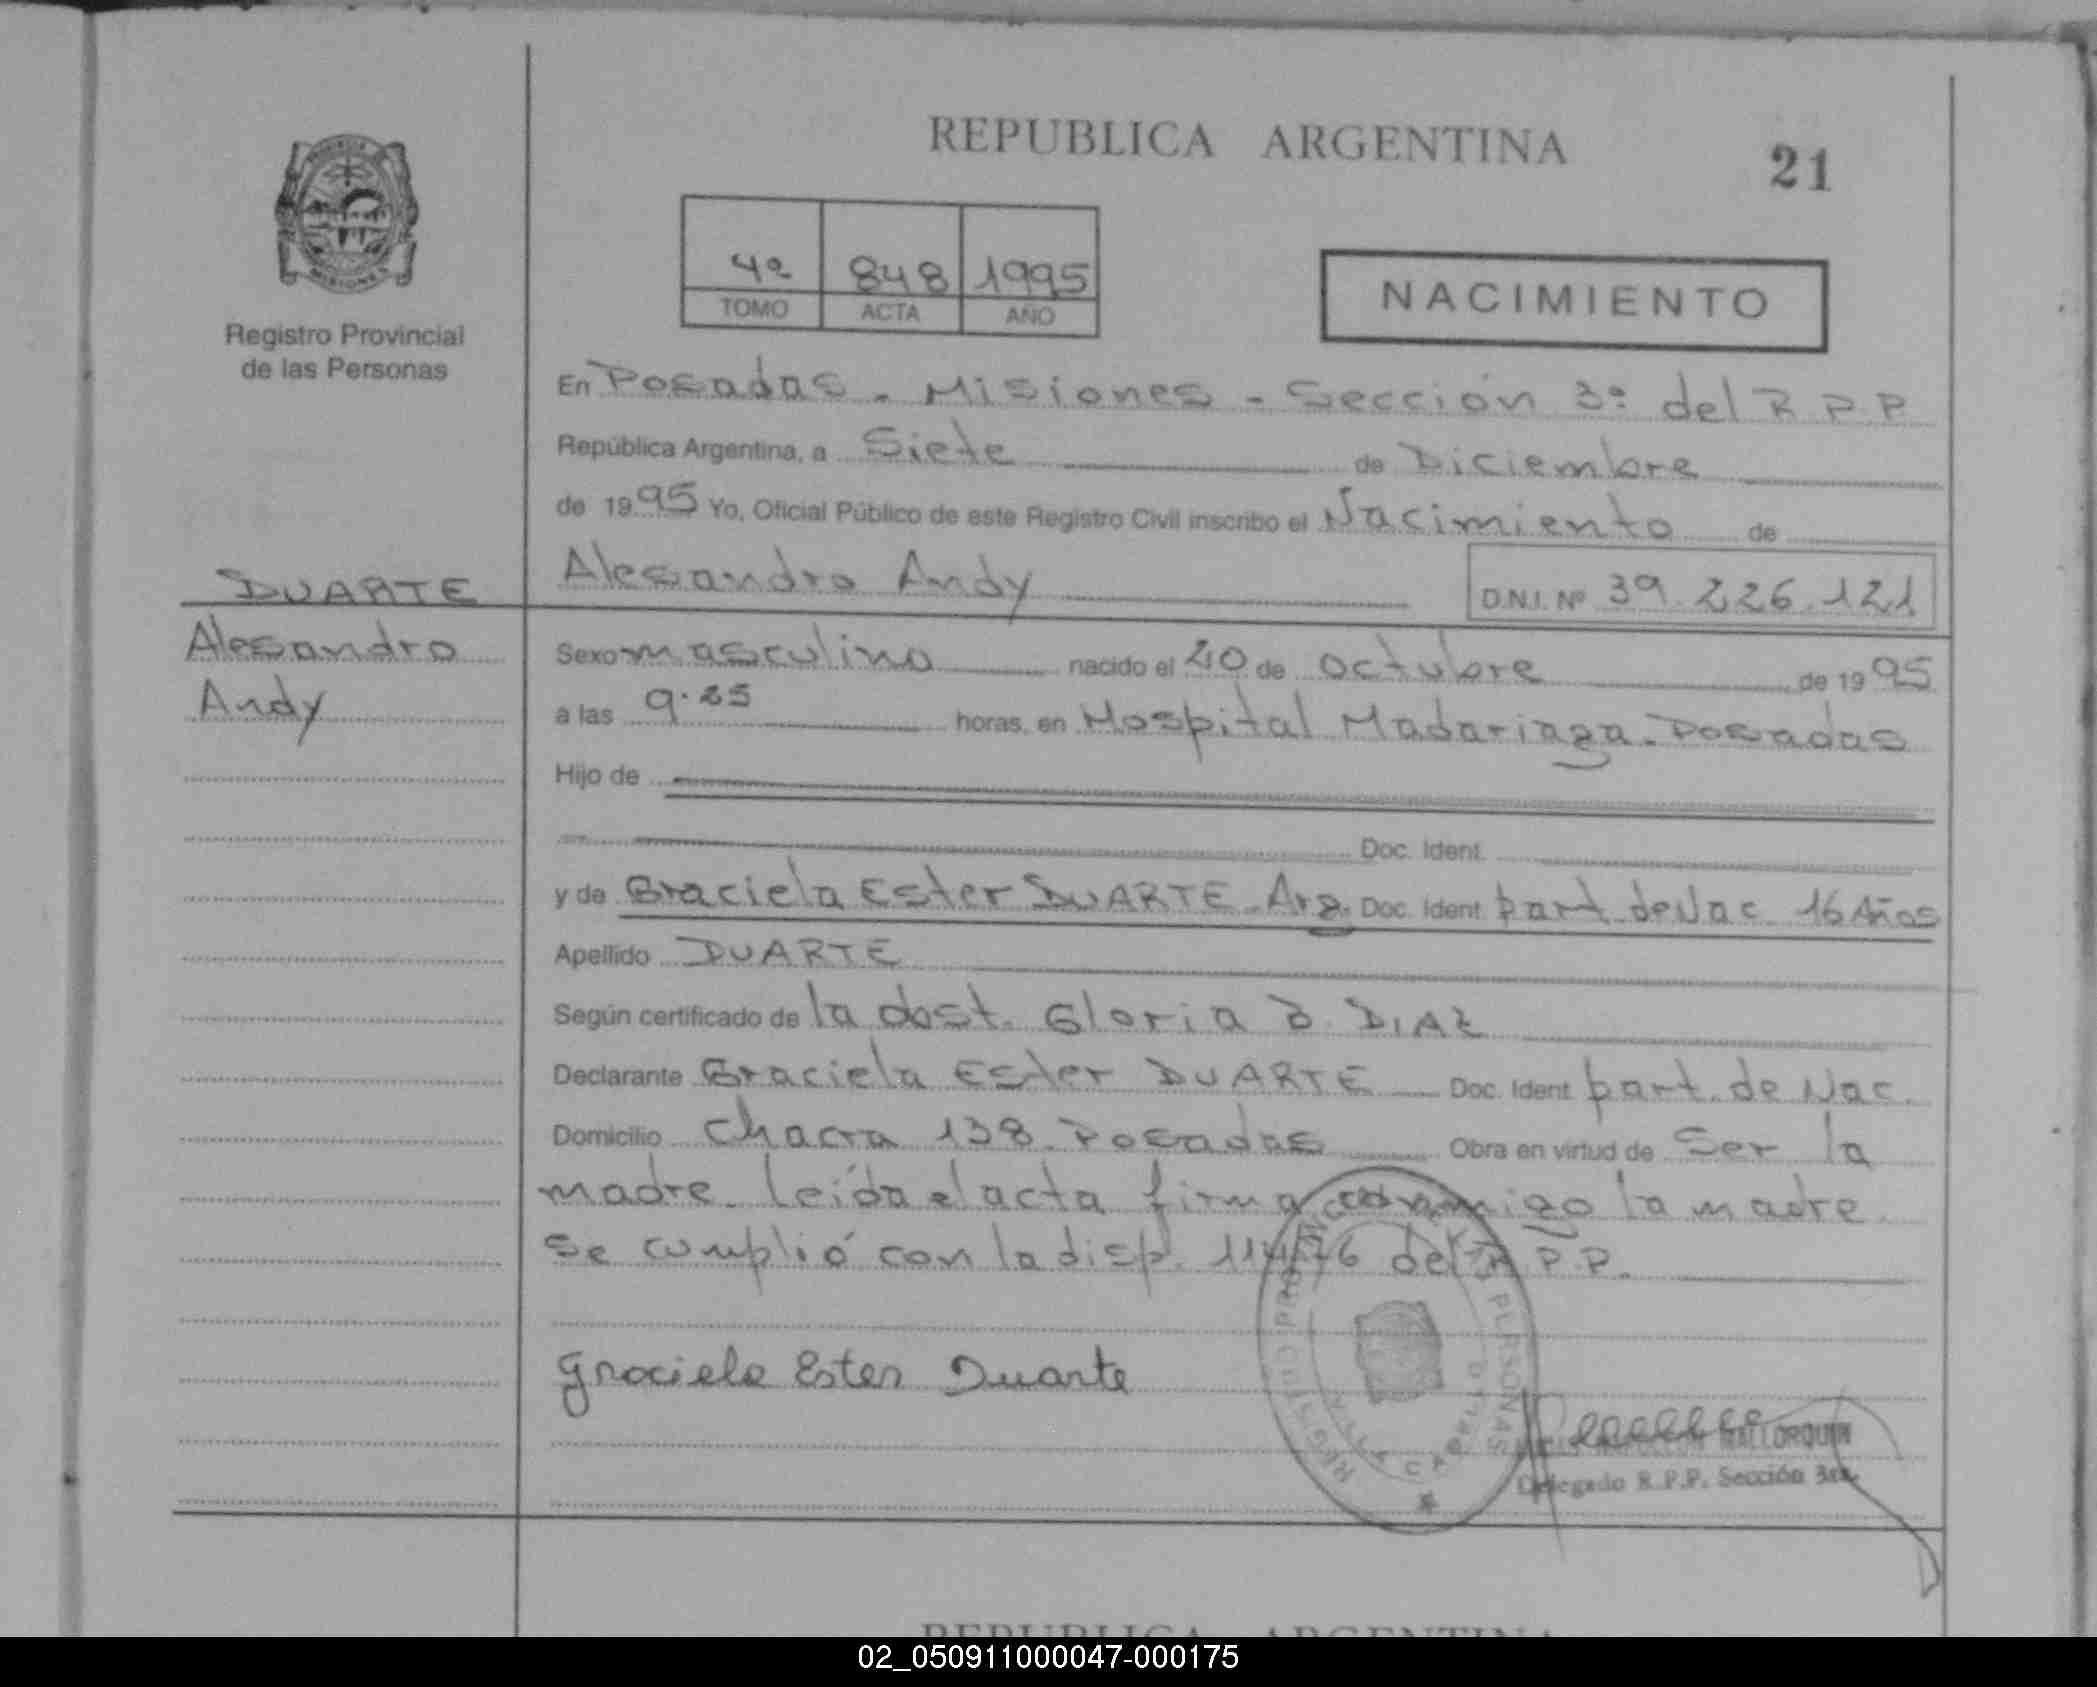 REPUBLICA ARGENTINA
21
4º 848 1995
TOMO ACTA AÑO
NACIMIENTO
Registro Provincial
de las Personas
En Posadas - Misiones - Sección 3º del R P P
República Argentina, a Siete de Diciembre
de 1995 Yo, Oficial Público de este Registro Civil inscribo el Nacimiento de
Alesandro Andy D.N.I. Nº 39.226.121
DUARTE
Alesandro
Andy
Sexo masculino nacido el de octubre de 1995
a las 9.25 horas, en Hospital Madariaga. Posadas
Hijo de
Doc. Ident.
y de Graciela Ester DUARTE - Arg. Doc. Ident part. de Nac 16 Años
Apellido DUARTE
Según certificado de la obst. Gloria DIAZ
Declarante Graciela Ester DUARTE Doc. Ident part. de Nac.
Domicilio Chacra 138 - Posadas Obra en virtud de Ser la
madre. leída el acta firma conmigo la madre.
se cumplió con la disp. del R P.P.
Graciela Ester Duarte
MALLORQUIN
Delegado R.P.P. Sección 3ra.
REPUBLICA ARGENTINA
02_050911000047-000175